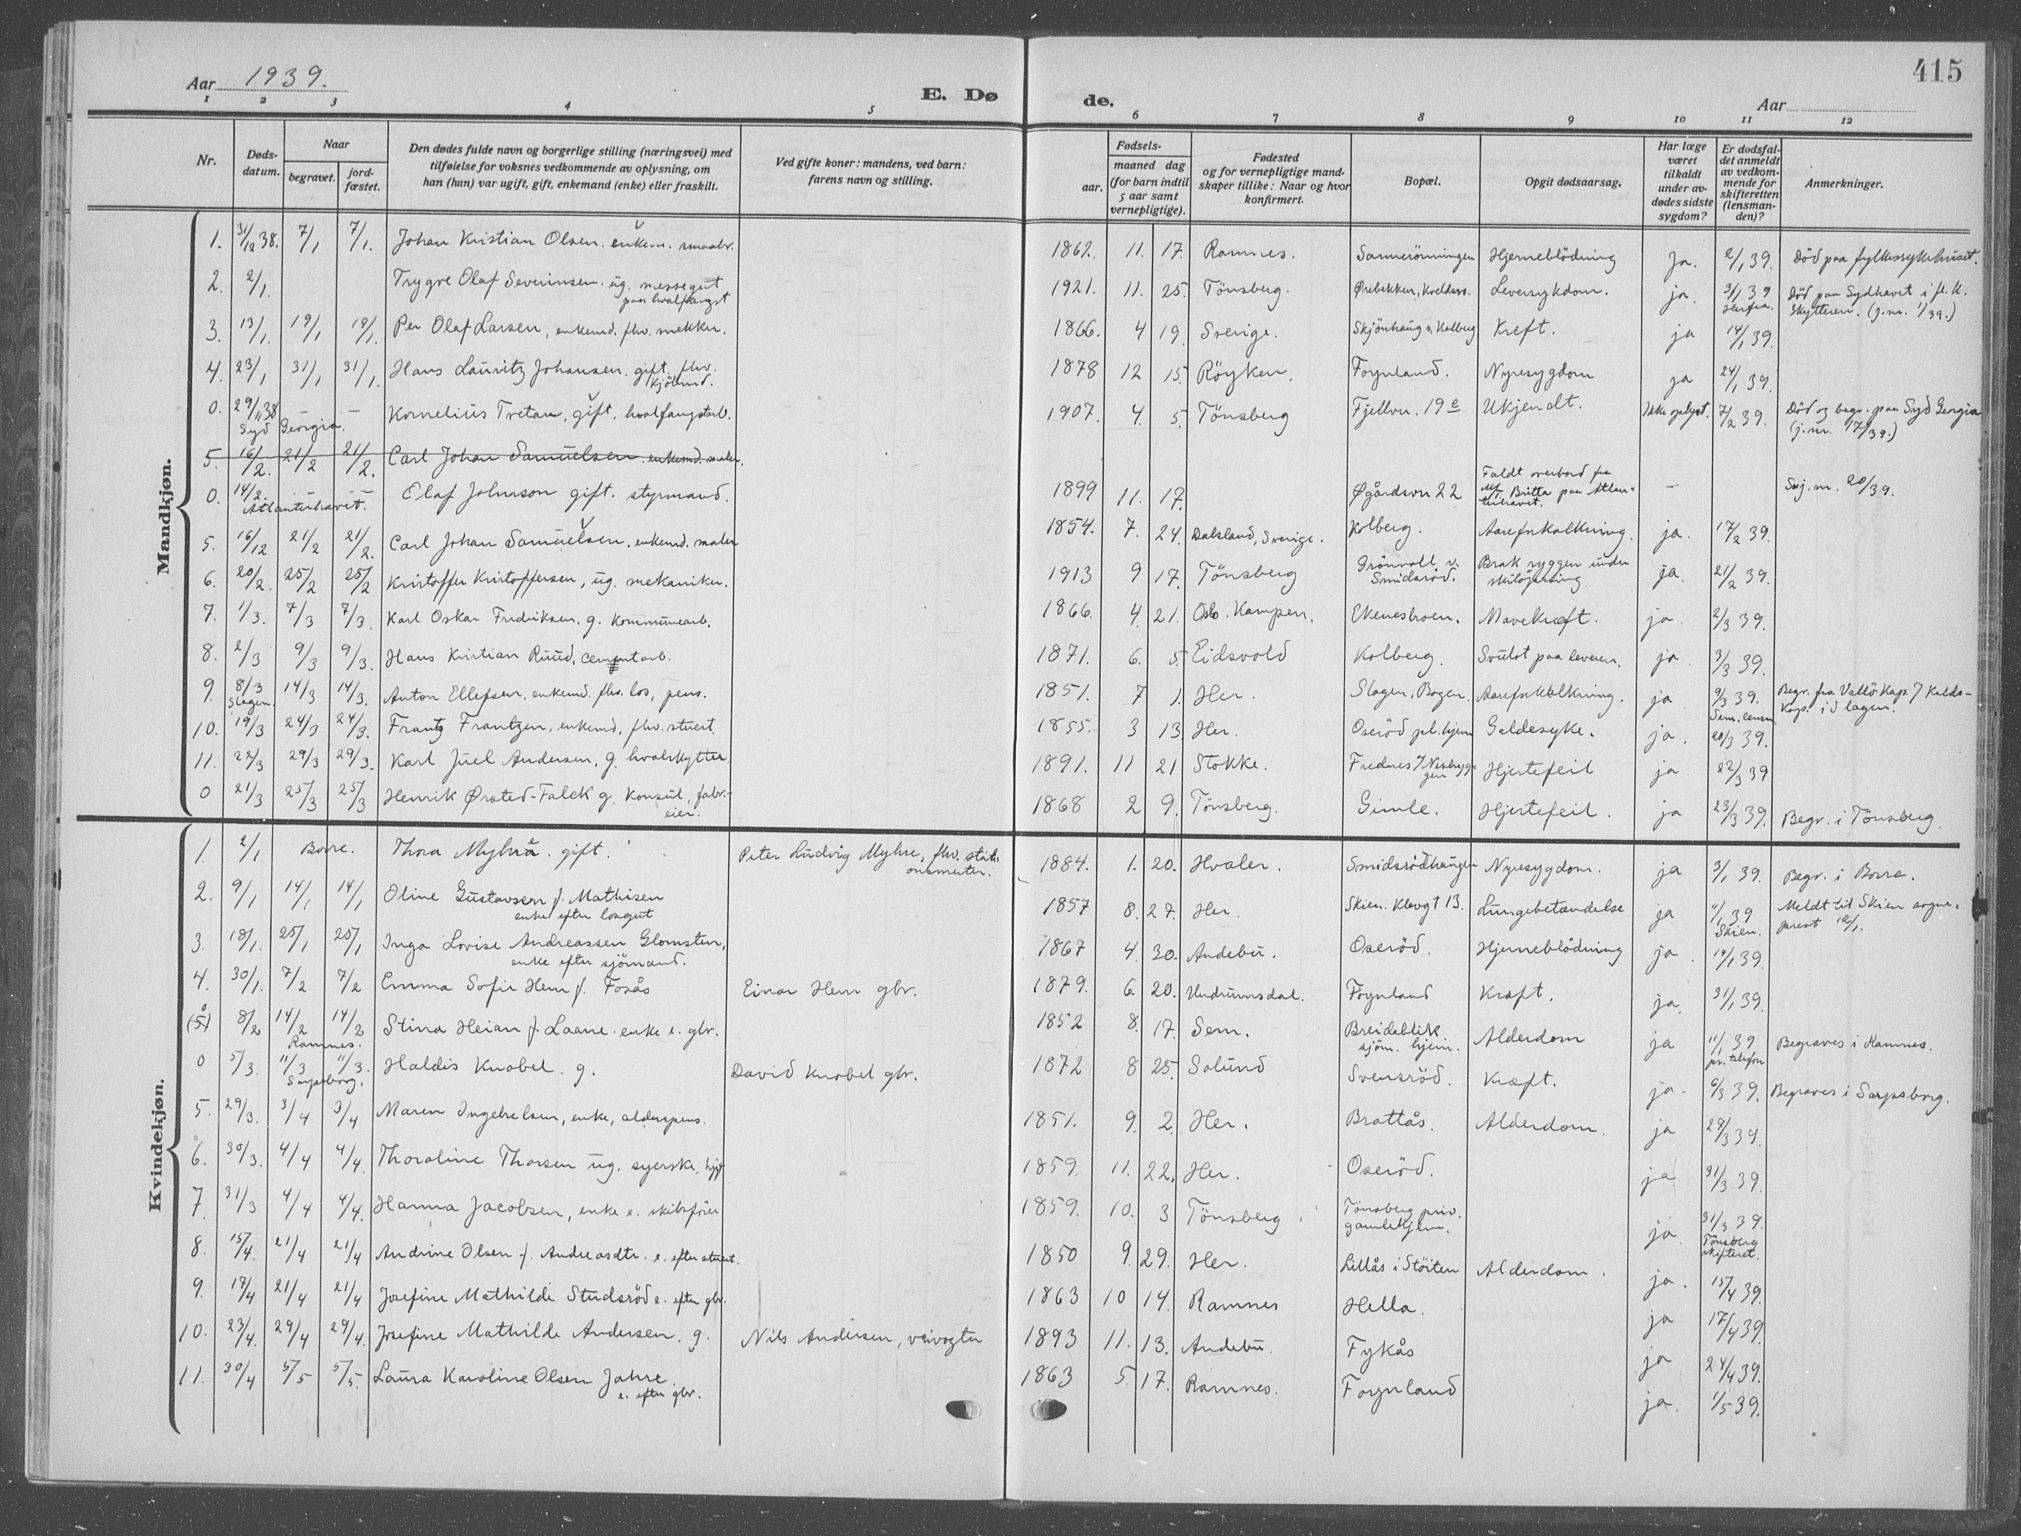 Aar 1939.
E. Dø
de.
Aar
415
1 2 3 4 5 6 7 8 9 10 11 12
Nr.
Døds-
datum.
Naar
begravet.
jord-
fæstet.
Den dødes fulde navn og borgerlige stilling (næringsvei) med
tilføielse for voksnes vedkommende av oplysning, om
han (hun) var ugift, gift, enkemand (enke) eller fraskilt.
Ved gifte koner: mandens, ved barn:
farens navn og stilling.
Fødsels-
aar.
maaned dag
(for barn indtil
5 aar samt
vernepligtige).
Fødested
og for vernepligtige mand-
skaper tillike: Naar og hvor
konfirmert.
Bopæl.
Opgit dødsaarsag.
Har læge
været
tilkaldt
under av-
dødes sidste
sygdom?
Er dødsfal-
det anmeldt
av vedkom-
mende for
skifteretten
(lensman-
den)?
Anmerkninger.
Mandkjøn.
1. 31/12 38. 7/1 7/1. Johan Kristian Olsen. enkem. smaabr. 1862. 11. 17. Ramnes. Sannerönningen Hjerneblödning Ja. 2/1 39. Död paa fylkessykehuset.
2. 2/1. Trygve Olaf Severinsen. ug. messegut
paa hvalfangst 1921. 11. 25. Tönsberg. Ørebekken, Leversykdom. ja. 31/1 39 Död paa Sydhavet i fl. k.
Skytteren. (j.nr. 1/39.)
3. 13/1. 19/1 19/1. Per Olaf Larsen, enkemd. fhv. 1866. 4 19. Sverige. Skjönhaug v. Kolberg Kreft. ja 14/1 39.
4. 23/1 31/1 31/1. Hans Lauritz Johansen. gift. fhv.
kjöbmd. 1878 12 15. Röyken. Foynland. Nyresygdom ja 24/1 39.
0. 29/11 38 — Kornelius Tretan, gift, hvalfangstarb. 1907. 4. 5. Tönsberg Fjellvn. 19 e Ukjendt. Ikke oplyst. 7/2 39. Död og begr. paa Syd Georgia
Syd Georgia. (j.nr. 17/39.)
5. 16/2. 21/2 21/2. Carl Johan Samuelsen. enkemd. maler.
0. 14/2. — — Olaf Johnson gift. styrmand. 1899 11. 17. Øgårdsvn 22 Faldt overbord fra
Atlanterhavet. M/s Britta paa Atlan-
terhavet. — Sej. nr. 20/39.
5. 16/12 21/2 21/2. Carl Johan Samuelsen. enkemd. maler 1854. 7. 24. Dalsland, Sverige. Kolberg. Aareforkalkning. ja. 17/2 39.
6. 20/2. 25/2 25/2 Kristoffer Kristoffersen, ug. mekaniker. 1913 9 17. Tönsberg Grönvoll v.
Smidsröd. Brak ryggen under
skilöpning. ja. 21/2 39.
7. 1/3. 7/3 7/3. Karl Oskar Fredriksen. g. kommunearb. 1866. 4. 21. Oslo. Kampen. Ekenesbroen. Mavekræft. ja. 2/3 39.
8. 2/3 9/3 9/3. Hans Kristian Ruud, cementarb. 1871. 6. 5. Eidsvold Kolberg. Svulst paa leveren. ja. 3/3 39.
9. 8/3 14/3 14/3. Anton Ellefsen. enkemd. fhv. los, pens. 1851. 7 1. Her. Slagen, Bogen. Aareforkalkning. ja 9/3 39. Begr. fra Vallö Kap.
Slagen. Sem. lensm
10. 19/3 24/3 24/3. Frantz Frantzen, enkemd, fhv. stuert. 1855. 3 13. Her. Oseröd pl.hjem Galdesyke. ja. 20/3 39.
11. 22/3 29/3 29/3. Karl Juel Andersen, g. hvalskytter 1891. 11 21 Stokke. Frednes / Nesbryg-
gen Hjertefeil ja 22/3 39
0 21/3 25/3 25/3 Henrik Ørsted-Falck g. konsul, fabr.-
eier. 1868 2 9. Tönsberg. Gimle. Hjertefeil. ja 23/3 39. Begr. i Tönsberg.
Kvindekjøn.
1. 2/1 Borre. Thora Myhre. gift. Peter Ludvig Myhre, fhv. stati-
onsmester. 1884. 1. 20. Hvaler. Smidsrödhaugen Nyresygdom. ja 3/1 39. Begr. i Borre.
2. 9/1 14/1 14/1 Oline Gustavsen f. Mathisen
enke efter losgut 1857 8. 27. Her. Skien. Klevgt 13. Lungebetændelse ja 11/1 39
Skien. Meldt til Skien sogne-
prest 12/1.
3. 18/1. 25/1 25/1 Inga Lovise Andreassen Glomsten,
enke efter sjömand. 1867 4. 30. Andebu. Oseröd. Hjerneblödning ja. 19/1 39.
4. 30/1. 7/2 7/2 Emma Sofie Hem f. Fosås Einar Hem gbr. 1879. 6. 20. Undrumsdal. Foynland Kræft. ja. 31/1 39.
(5) 8/2 14/2 14/2 Stina Heian f. Laane. enke e. gbr. 1852 8. 17. Sem. Breideblik
sjöm. hjem. Alderdom ja 11/1 39
pr. telefon Begraves i Ramnes.
Ramnes.
0 5/3. 11/3 11/3. Haldis Knobel. g. David Knobel gbr. 1872 8 25. Solund Svensröd. Kræft. ja. 6/3 39. Begraves i Sarpsborg.
Sarpsborg.
5. 29/3. 3/4 3/4 Maren Ingebretsen, enke, alderspens. 1851. 9. 2. Her. Brattås. Alderdom. ja 29/3 39.
6. 30/3. 4/4 4/4. Thoraline Thorsen ug. syerske, 1859. 11. 22. Her. Oseröd. ja 31/3 39.
7. 31/3 4/4 4/4. Hanna Jacobsen, enke e. skibsförer 1859. 10. 3 Tönsberg. Tönsberg priv.
gamlehjem. ja. 31/3 39.
Tönsberg
skifteret.
8. 15/4. 21/4 21/4 Andrine Olsen f. Andreasdtr. e. efter stuert. 1850 9. 29. Her. Lillås i Stöiten Alderdom. ja. 15/4 39.
9. 17/4 21/4 21/4 Josefine Mathilde Studsröd e. efter gbr. 1863 10 14. Ramnes Hella. ja 17/4 39.
10. 23/4. 29/4 29/4. Josefine Mathilde Andersen. g. Nils Andersen, veivogter 1893 11. 13. Andebu. Fykås ja 24/4 39.
11. 30/4 5/5 5/5. Laura Karoline Olsen Jahre.
e. efter gbr. 1863 5. 17. Ramnes. Foynland ja. 1/5 39.